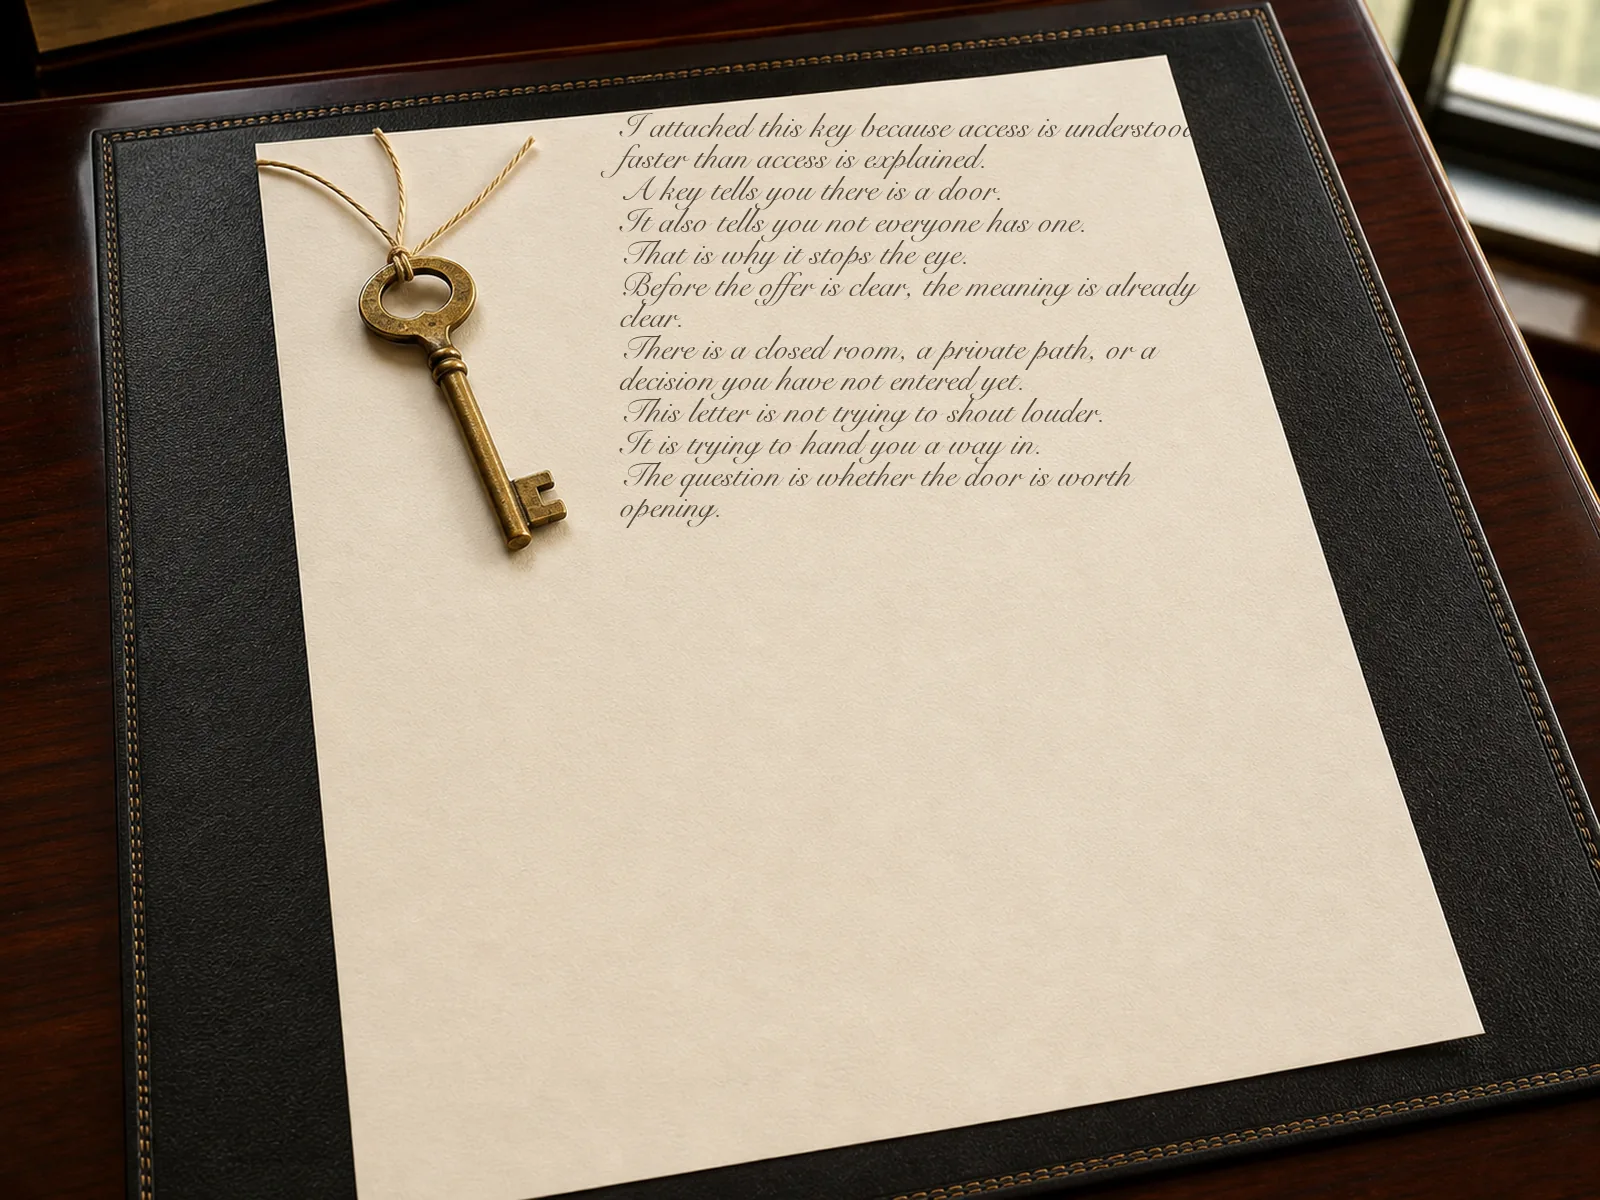 I attached this key because access is understood
faster than access is explained.
A key tells you there is a door.
It also tells you not everyone has one.
That is why it stops the eye.
Before the offer is clear, the meaning is already
clear.
There is a closed room, a private path, or a
decision you have not entered yet.
This letter is not trying to shout louder.
It is trying to hand you a way in.
The question is whether the door is worth
opening.